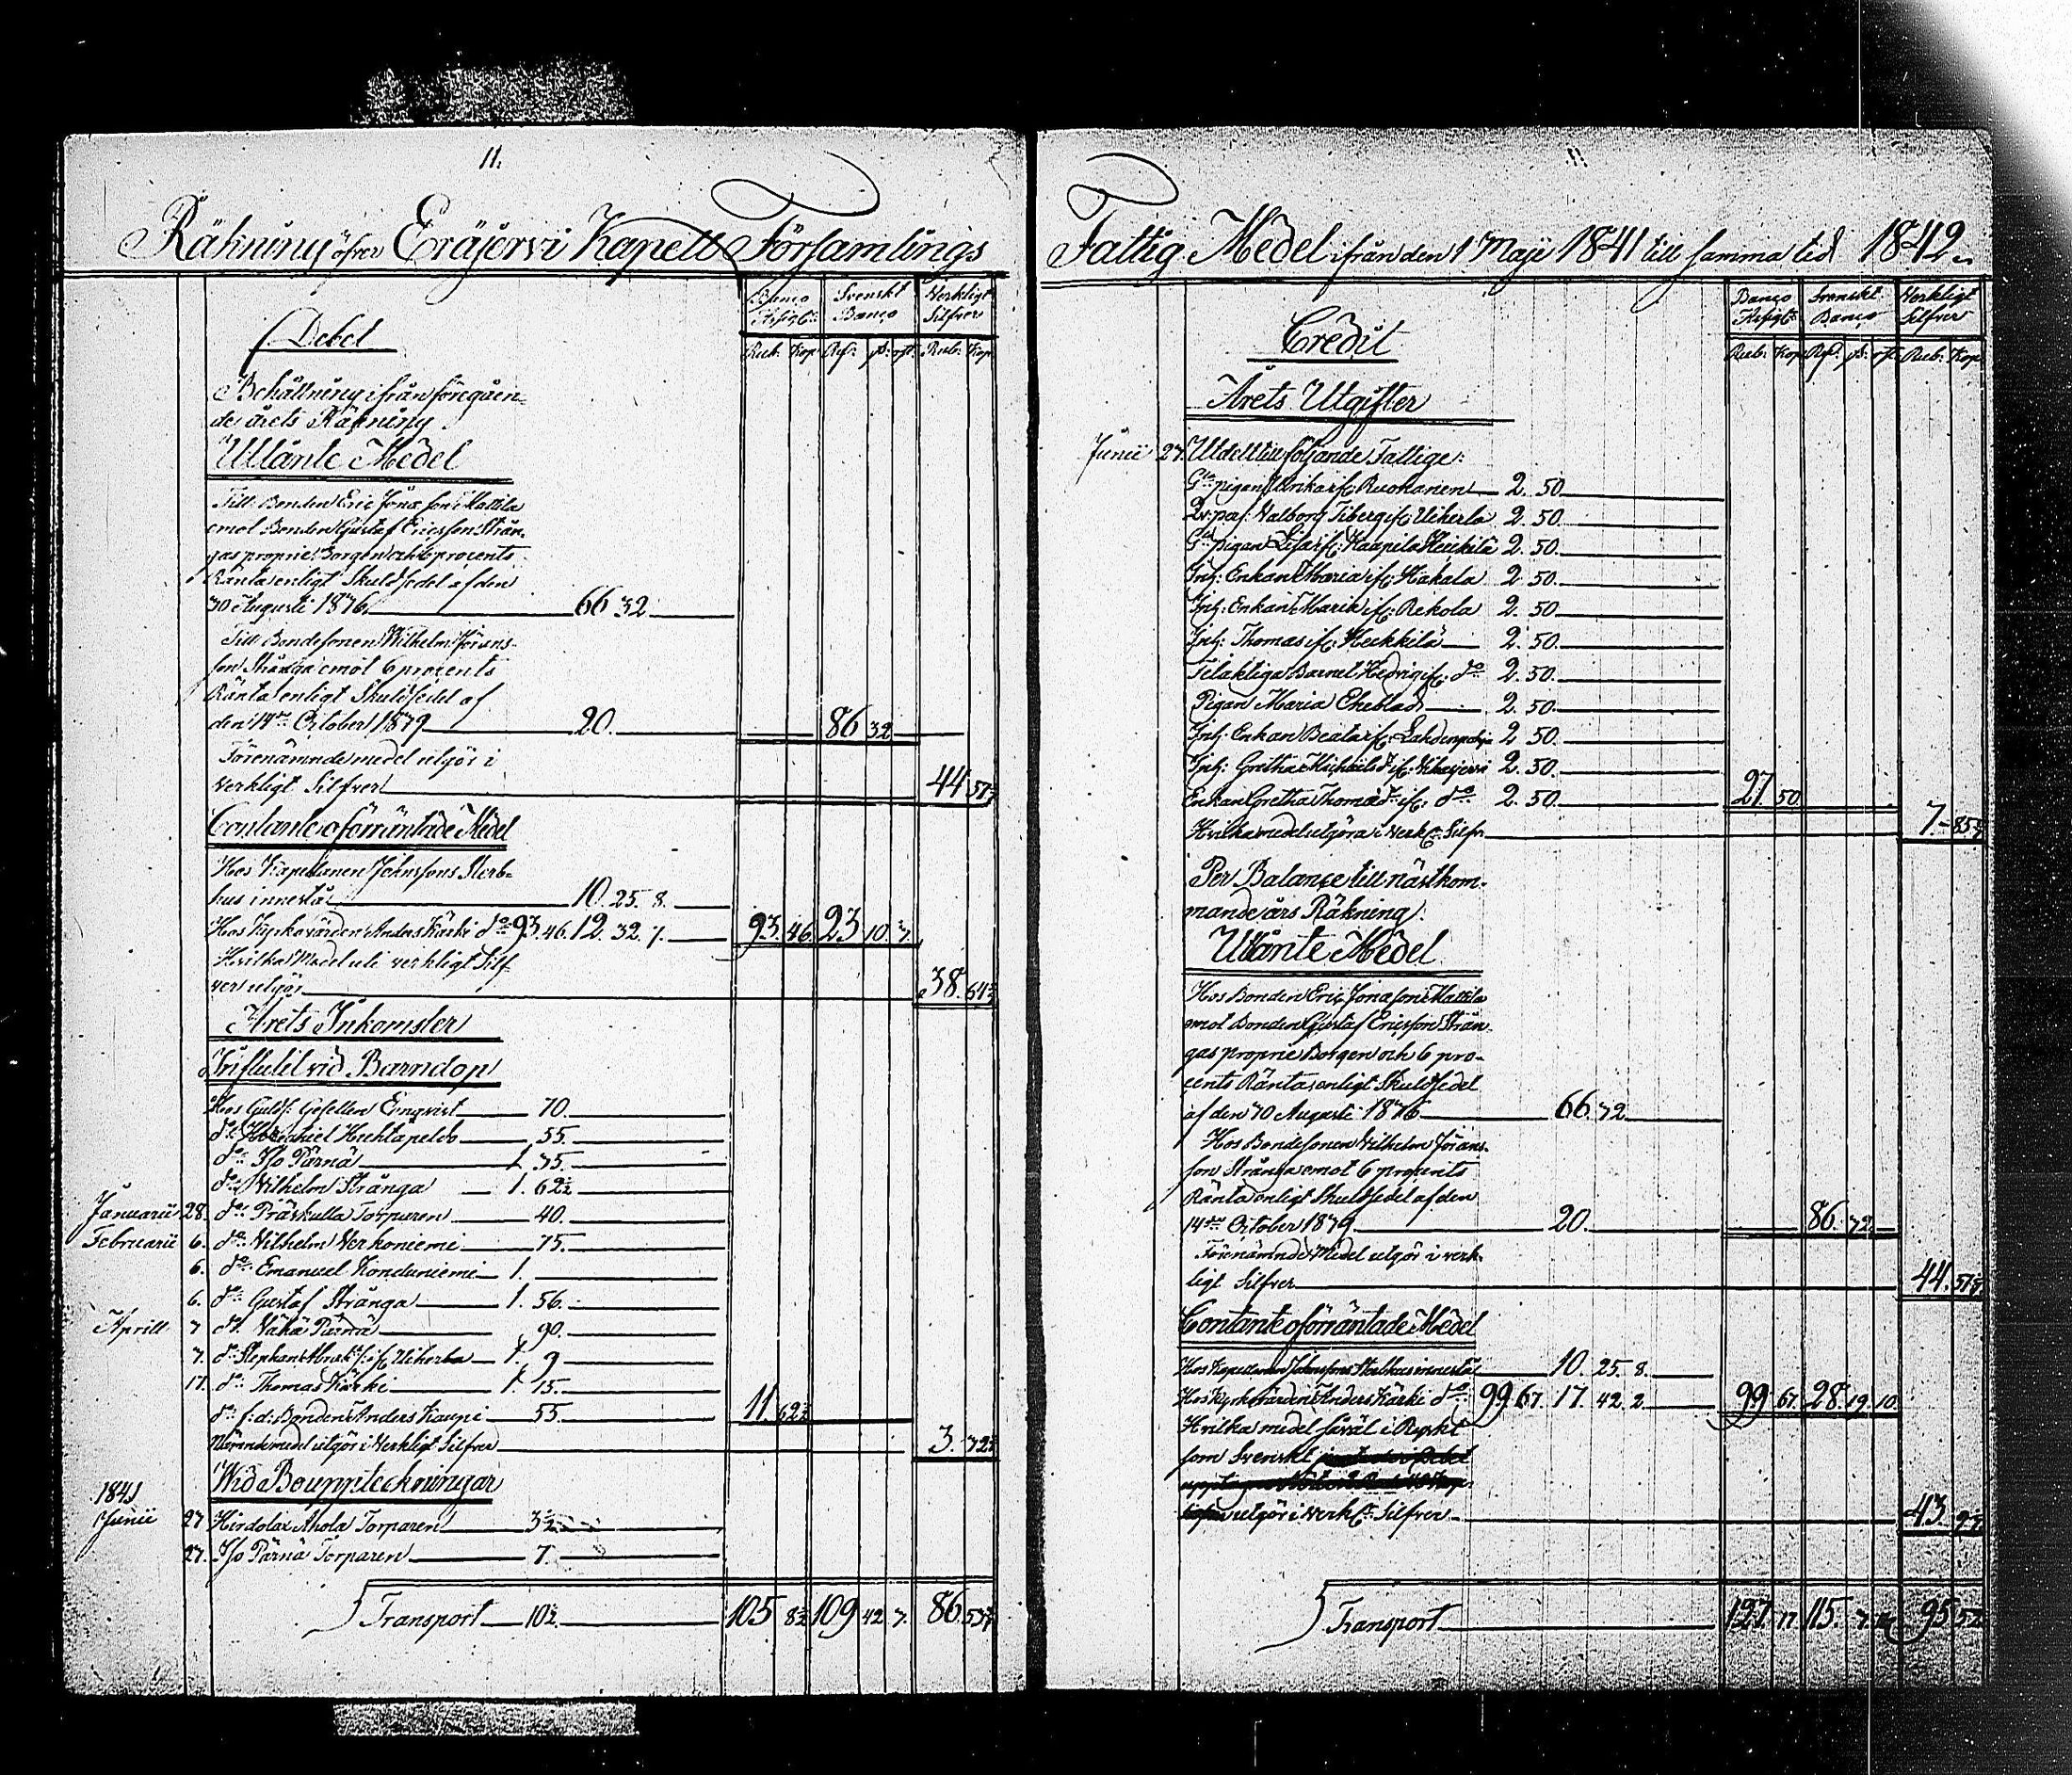 11.
Räkning öfver Eräjervi Kapell Församlings
Banco Assigt: Svenskt Banco Verkligt Silfver
Debet
Rub: Kop: Rd: ß: rst: Rub: Kop:
Behållning ifrån föregåen-
de årets Räkning
Utlånte Medel
Till Bonden Eric Jönsson Mattila
emot Bonden Gustaf Ericsson Strån-
gas proprie Borgen och 6 procents
Ränta enligt Skuldsedel af den
30 Augusti 1836 66 32
Till Bondesonen Wilhelm Görans-
son Strånga emot 6 procents
Ränta enligt Skuldsedel af
den 14de October 1839 20. 86 32
Förenämnde medel utgör i
verkligt Silfver 44 57
Contante oförräntade Medel
Hos Kapellanen Johnssons Sterb-
hus innestå 10. 25. 8.
Hos Kyrkovärden Anders Kärki do 93. 46. 12. 32. 7. 93. 46. 23 10. 3.
Hvilka Medel uti verkligt Silf-
ver utgör 38. 64
Årets Inkomster
Influtit vid Barndop
Hos Guldf: Gesellen Enqvist 70.
do Huhtapeldo 55.
do Iso Pärnä 1. 35.
do Wilhelm Strånga 1. 62½
Januarii 28. do Präskulla Torparen 40.
Februarii 6. do Wilhelm Verkoniemi 75.
6. do Emanuel Konduniemi 1.
6. do Gustaf Strånga 1. 56.
Aprill 7 do Vähä Pärnä 90.
7. do Stephan if: Uiherla 1. 9
11. do Thomas Kärki 1. 15.
do f: d: Bonden Anders Kaupi 55. 11 62½
Nämnde medel utgör i Verkligt Silfver 3. 32
Wid Bouppteckningar
1841
Junii 27 Hirdola Ahola Torparen 3½
27. Iso Pärnä Torparen 7.
Transport 10½ 105 8½ 109 42 7. 86. 53
11
Fattig Medel ifrån den 1 Maji 1841 till samma tid 1842.
Banco Assigt: Svenskt Banco Verkligt Silfver
Credit
Rub: Kop: Rd: ß: rst: Rub: Kop:
Årets Utgifter
Junii 27. Utdelt till följande Fattige:
Gla pigan Ulrika if: Ruokanen 2. 50
Qv: pers: Valborg Tiberg if: Uiherla 2. 50.
Gla pigan Lisa if: Kaapila Heikilä 2. 50.
Inh: Enkan Maria if: Hakala 2. 50.
Inh: Enkan Maria if: Rekola 2. 50
Inh: Thomas if: Heikkilä 2. 50.
Barnet Hedvig if: do 2. 50.
Pigan Maria Ekeblad 2. 50.
Inh: Enkan Beata if: Lahdenpohja 2. 50.
Inh: Gretha Michelsdr if: Vihajervi 2. 50.
Enkan Gretha Thomædr if: do 2. 50. 27 50
Hvilka medel utgöra i verk:t Silfr: 7. 85
Per Balance till nästkom-
mande års Räkning
Utlånte Medel
Hos Bonden Eric Jönsson Mattila
emot Bonden Gustaf Ericsson Strån-
gas proprie Borgen och 6 pro-
cents Ränta, enligt Skuldsedel
af den 30 Augusti 1836 66 32
Hos Bondesonen Wilhelm Görans-
son Strånga emot 6 procents
Ränta enligt Skuldsedel af den
14de October 1839 20. 86. 32
Förenämnde Medel utgör i verk-
ligt Silfver 44. 57
Contante oförräntade Medel
Hos Kapellanen Johnssons Sterbhus innestå 10. 25. 8.
Hos Kyrkovärden Anders Kärki do 99 67. 17. 42. 2. 99 67. 28. 19. 10.
Hvilka medel såväl i Ryskt
som Svenskt
utgör i verk:t Silfver 43. 9
Transport 127. 17. 115. 3. 10. 95 52